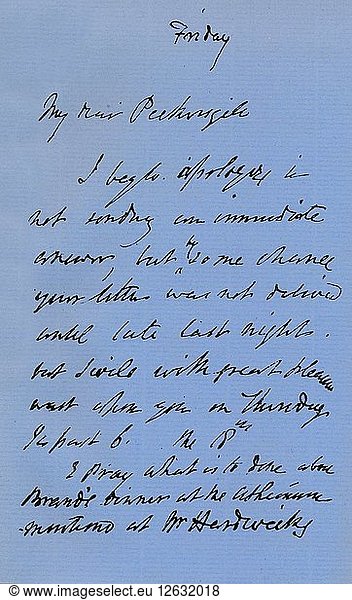 Friday
My dear Pickersgill
I beg to apologize in
not sending an immediate
answer, but by some chance
your letter was not delivered
until late last night.
but I will with great pleasure
wait upon you on Thursday
¼ past 6. the 18th
& Pray what is to done about
Brand's dinner at the Athenaeum
mentioned at Mr Hardwicks
akg-images
IMAGE NUMBER: 12632018